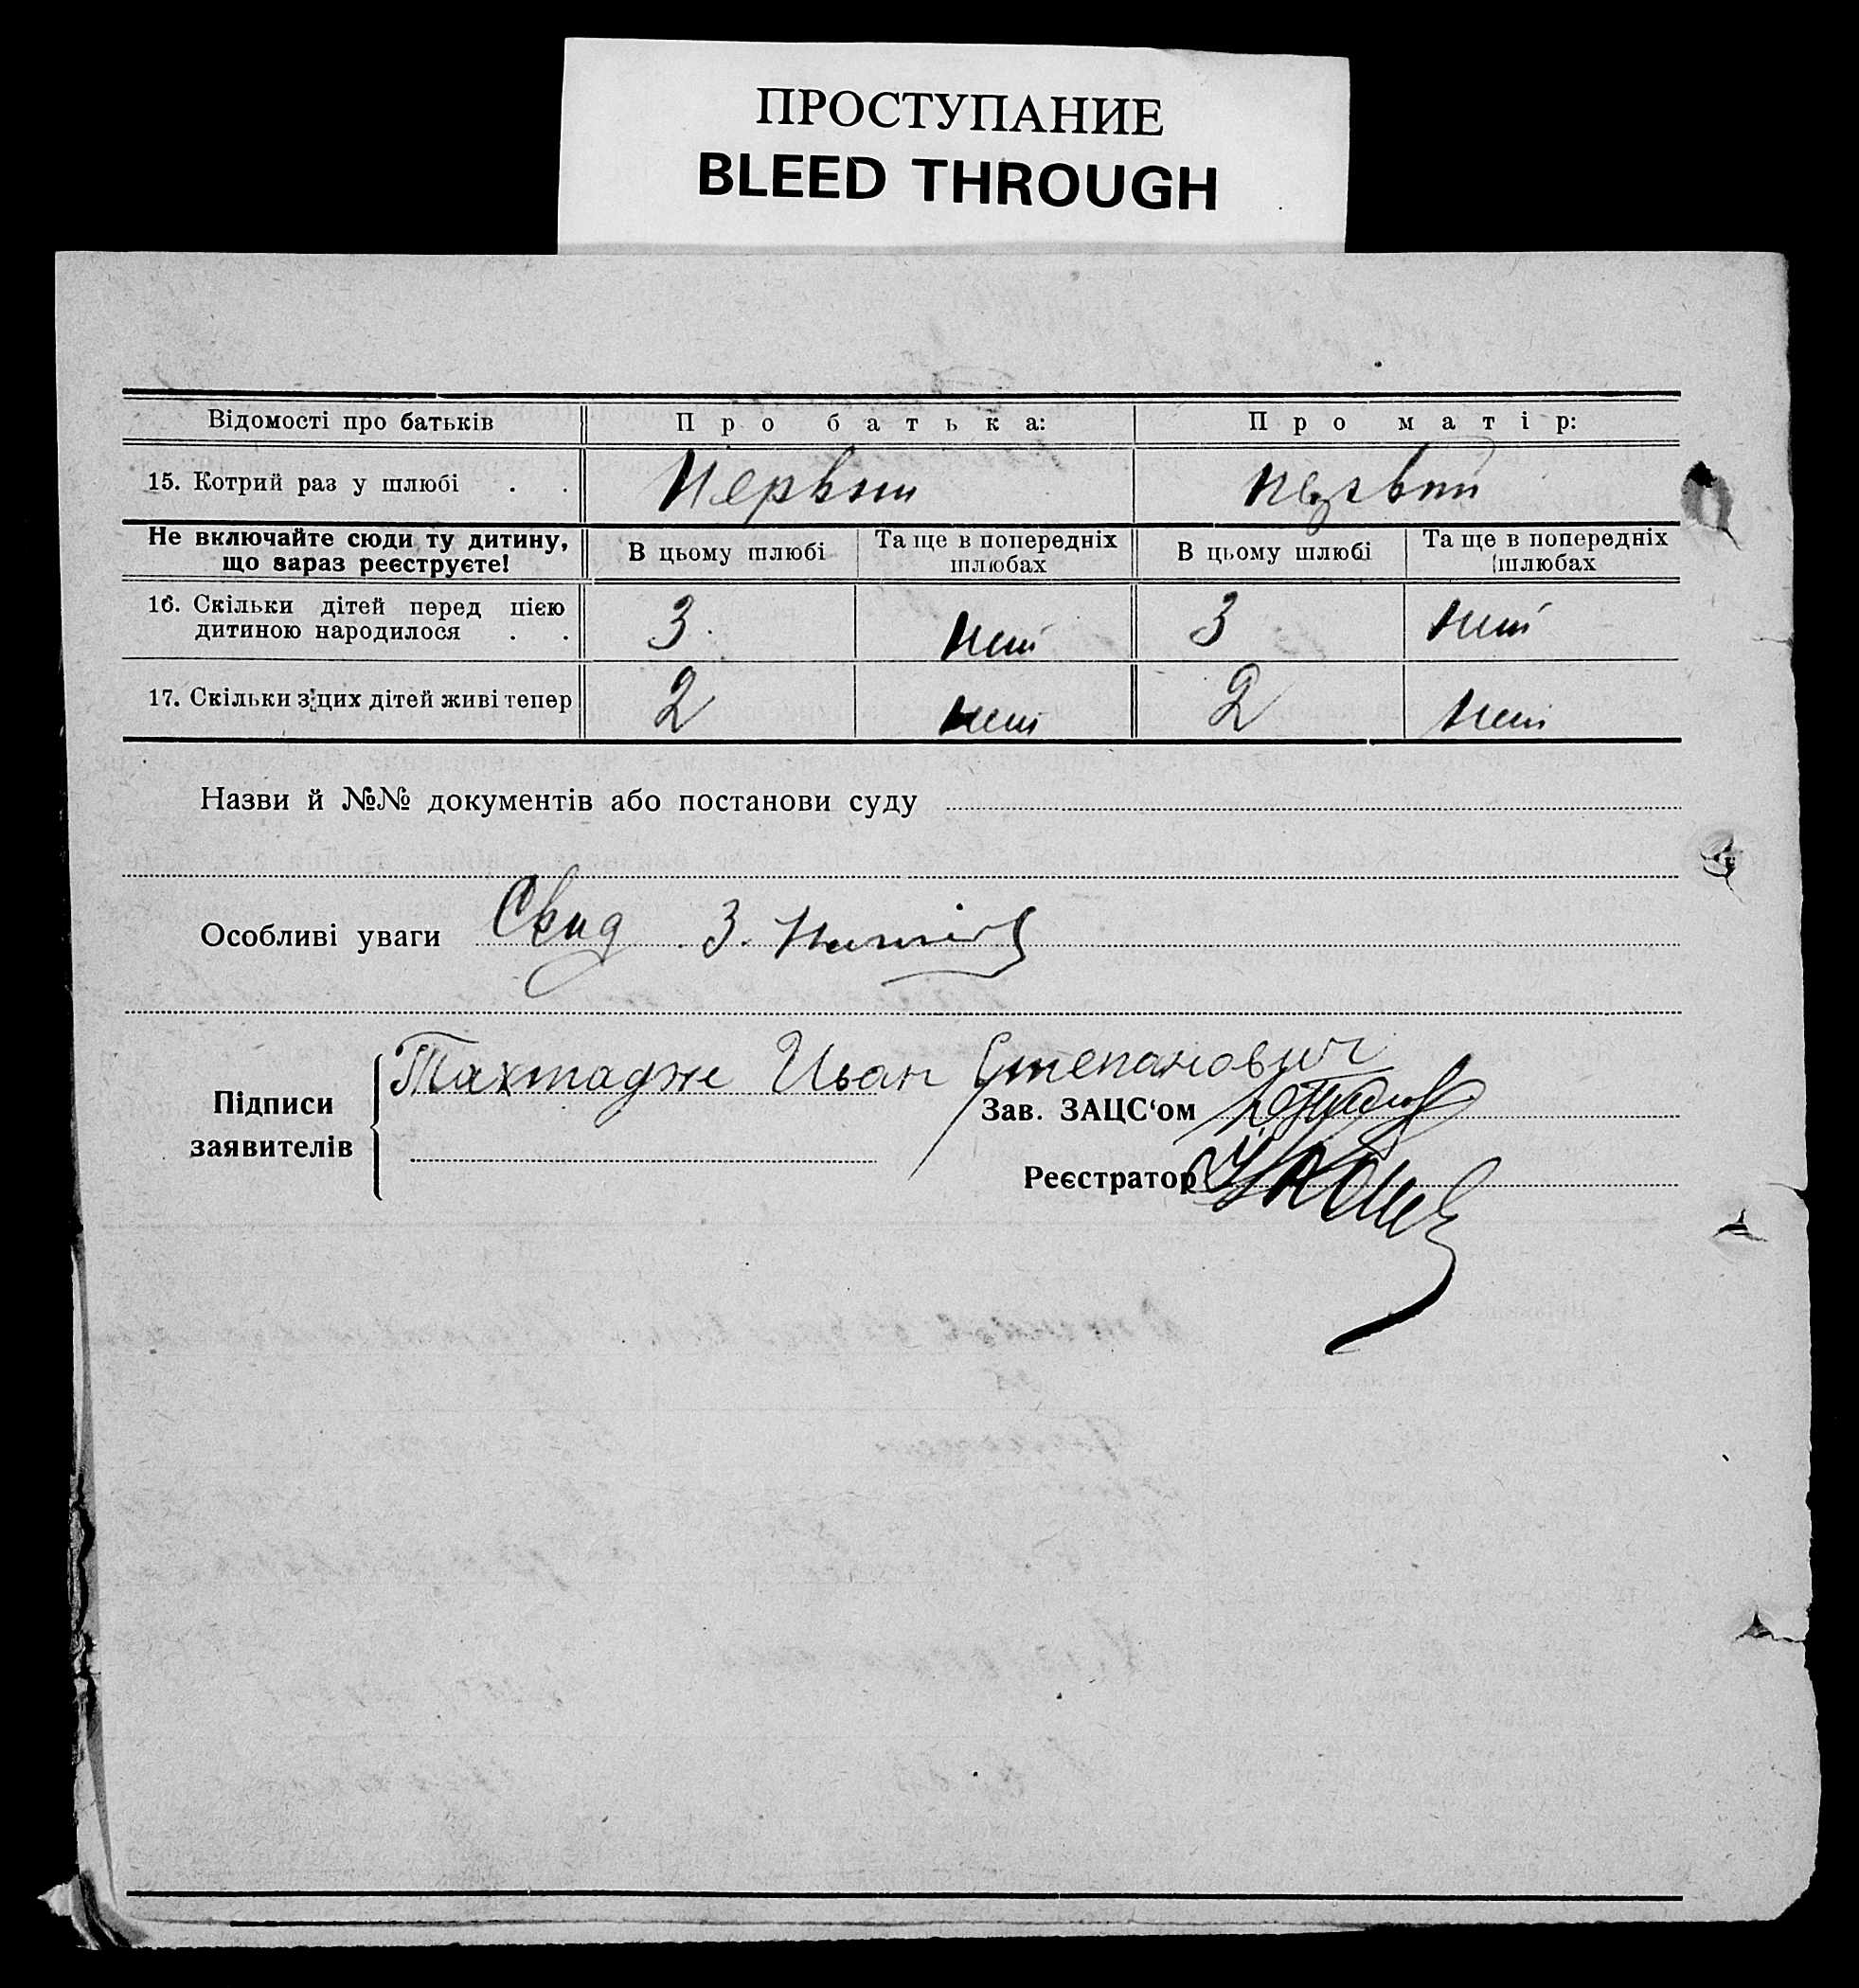 ПРОСТУПАНИЕ
BLEED THROUGH
Відомості про батьків Про батька: Про матір:
15. Котрий раз у шлюбі . . Первый первый
Не включайте сюди ту дитину, що зараз реєструєте! В цьому шлюбі Та ще в попередніх шлюбах В цьому шлюбі Та ще в попередніх шлюбах
16. Скільки дітей перед цією дитиною народилося . . 3 нет 3 нет
17. Скільки з цих дітей живі тепер 2 нет 2 нет
Назви й №№ документів або постанови суду
Особливі уваги Свид З.
Тахтадже Иван Степанович
Підписи заявителів
Зав. ЗАЦС‘ом
Реєстратор